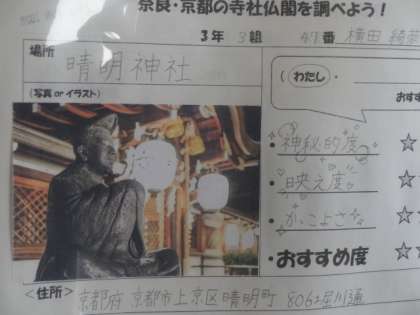 奈良・京都の寺社仏閣を調べよう！
3年 3組 47番 横田
場所
晴明神社
(写真 or イラスト)
わたし・
おすす
・神秘的度
・映え度
・かっこよさ
・おすすめ度
＜住所＞ 京都府 京都市上京区晴明町 806 堀川通